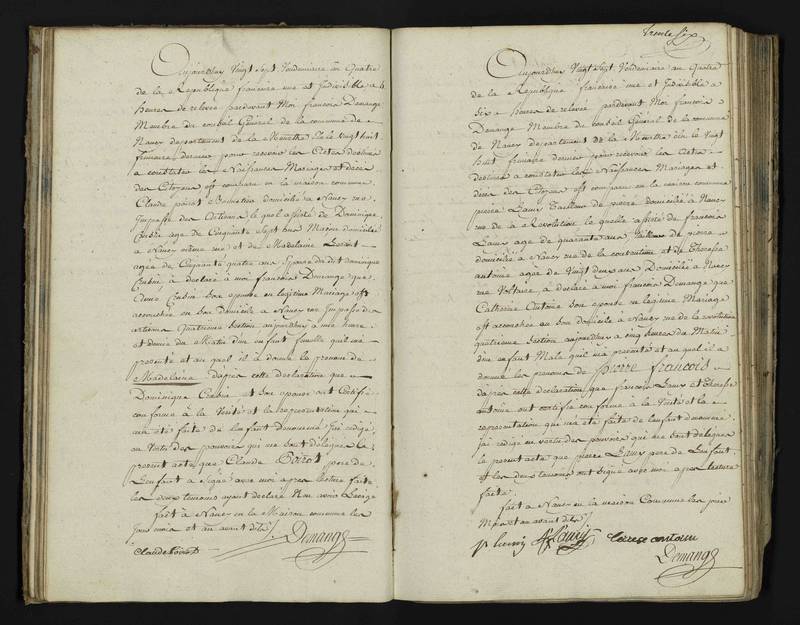 Aujourdhuy Vingt Sept Vendemiaire an Quatre
de la Republique francoise une et Indivisible a
heures de relevee pardevant Moi francois Demange
Membre du conseil General de la commune de
Nancy departement de la Meurthe Elu le vingt huit
frimaire dernier pour recevoir les Actes destinés
a constater les Naissances Mariages et décès
des Citoyens est comparu en la maison commune
Claude poirot domicilié a Nancy rue
Impasse des Artisans le quel assisté de Dominique
age de Cinquante Sept ans Maçon domicilié
a Nancy même rue et de Madelaine
agée de Cinquante quatre ans Epouse du dit dominique
a déclaré à moi francois Demange que
son epouse en légitime Mariage est
accouchée en son domicile a Nancy rue Impasse des
artisans quatrieme Section aujourdhuy a une heure
et demie du Matin d'un enfant femelle quil ma
presenté et au quel il a donné le prenom de
Madelaine d'après cette declaration que
Dominique et son epouse ont Certifié
conforme à la Verité et la representation qui
ma été faite de l'enfant denommé jai redigé
en Vertu des pouvoirs qui me sont délégués le
present acte que Claude Poirot pere de
L'enfant a Signé avec moi apres lecture faite
les deux temoins ayant declaré Non avoir L'usage
fait à Nancy en la Maison commune les
jour mois et an avant dits
Claude Poirot Demange
trente Six
Aujourdhuy Vingt Sept Vendemiaire an Quatre
de la Republique francoise une et Indivisible a
Six heures de relevee pardevant Moi francois
Demange Membre du conseil General de la commune
de Nancy departement de la Meurthe élu le Vingt
huit frimaire dernier pour recevoir les actes
destinés a constater les Naissances Mariages et
décès des Citoyens est comparu en la maison commune
pierre Lamy Tailleur de pierre domicilié à Nancy
rue de la Revolution le quel assisté de francois
Lamy age de quarante ans tailleur de pierre
domicilié a Nancy rue de la constitution et de Therese
antoine agée de Vingt deux ans Domiciliée a Nancy
rue Voltaire, a déclaré a moi francois Demange que
Catherine Antoine Son epouse en legitime Mariage
est accouchée en son domicile à Nancy rue de la revolution
quatrieme Section aujourdhuy a cinq heures du Matin
d'un enfant Male quil ma presenté et au quel il a
donné les prenoms de pierre francois
d'après cette declaration que francois Lamy et Therese
antoine ont certifié conforme à la Verité et la
representation qui ma été faite de l'enfant denommé
jai redigé en vertu des pouvoirs qui me sont délégués
le present acte que pierre Lamy pere de L'enfant
et les deux temoins ont signé avec moi apres lecture
faite.
fait a Nancy en la maison Commune les jour
Mois et an avant dits
p lamy f Lamy terese antoine
Demange